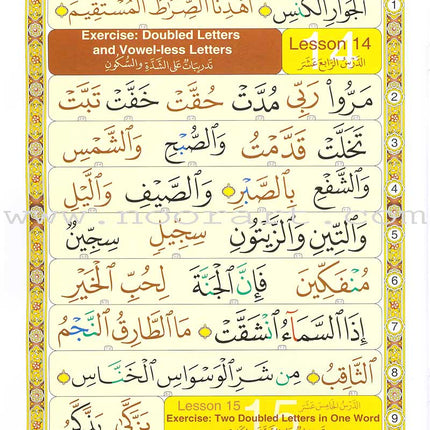 الْجَوَارِ الْكُنَّسِ اهْدِنَا الصِّرَاطَ الْمُسْتَقِيمَ 1
Exercise: Doubled Letters and Vowel-less Letters
تَدْرِيبَاتٌ عَلَى الشَّدَّةِ وَالسُّكُونِ
Lesson 14
الدَّرْسُ الرَّابِعَ عَشَرَ
مَرُّوا رَبِّي مُدَّتْ حُقَّتْ خَفَّتْ تَبَّتْ 2
تَخَلَّتْ قَدَّمَتْ وَالصُّبْحِ وَالشَّمْسِ 3
وَالشَّفْعِ بِالصَّبْرِ وَالصَّيْفِ وَاللَّيْلِ 4
www.noorart.com
وَالتِّينِ وَالزَّيْتُونِ سِجِّيلٍ سِجِّينٌ 5
مُنْفَكِّينَ فَإِنَّ الْجَنَّةَ لِحُبِّ الْخَيْرِ 6
إِذَا السَّمَاءُ انْشَقَّتْ مَا الطَّارِقُ النَّجْمُ 7
الثَّاقِبُ مِنْ شَرِّ الْوَسْوَاسِ الْخَنَّاسِ 8
يَزَّكَّىٰ يَذَّكَّرُ 9
Lesson 15
الدَّرْسُ الْخَامِسَ عَشَرَ
Exercise: Two Doubled Letters in One Word